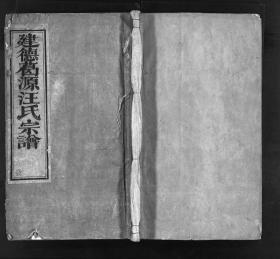 建德葛源汪氏宗譜